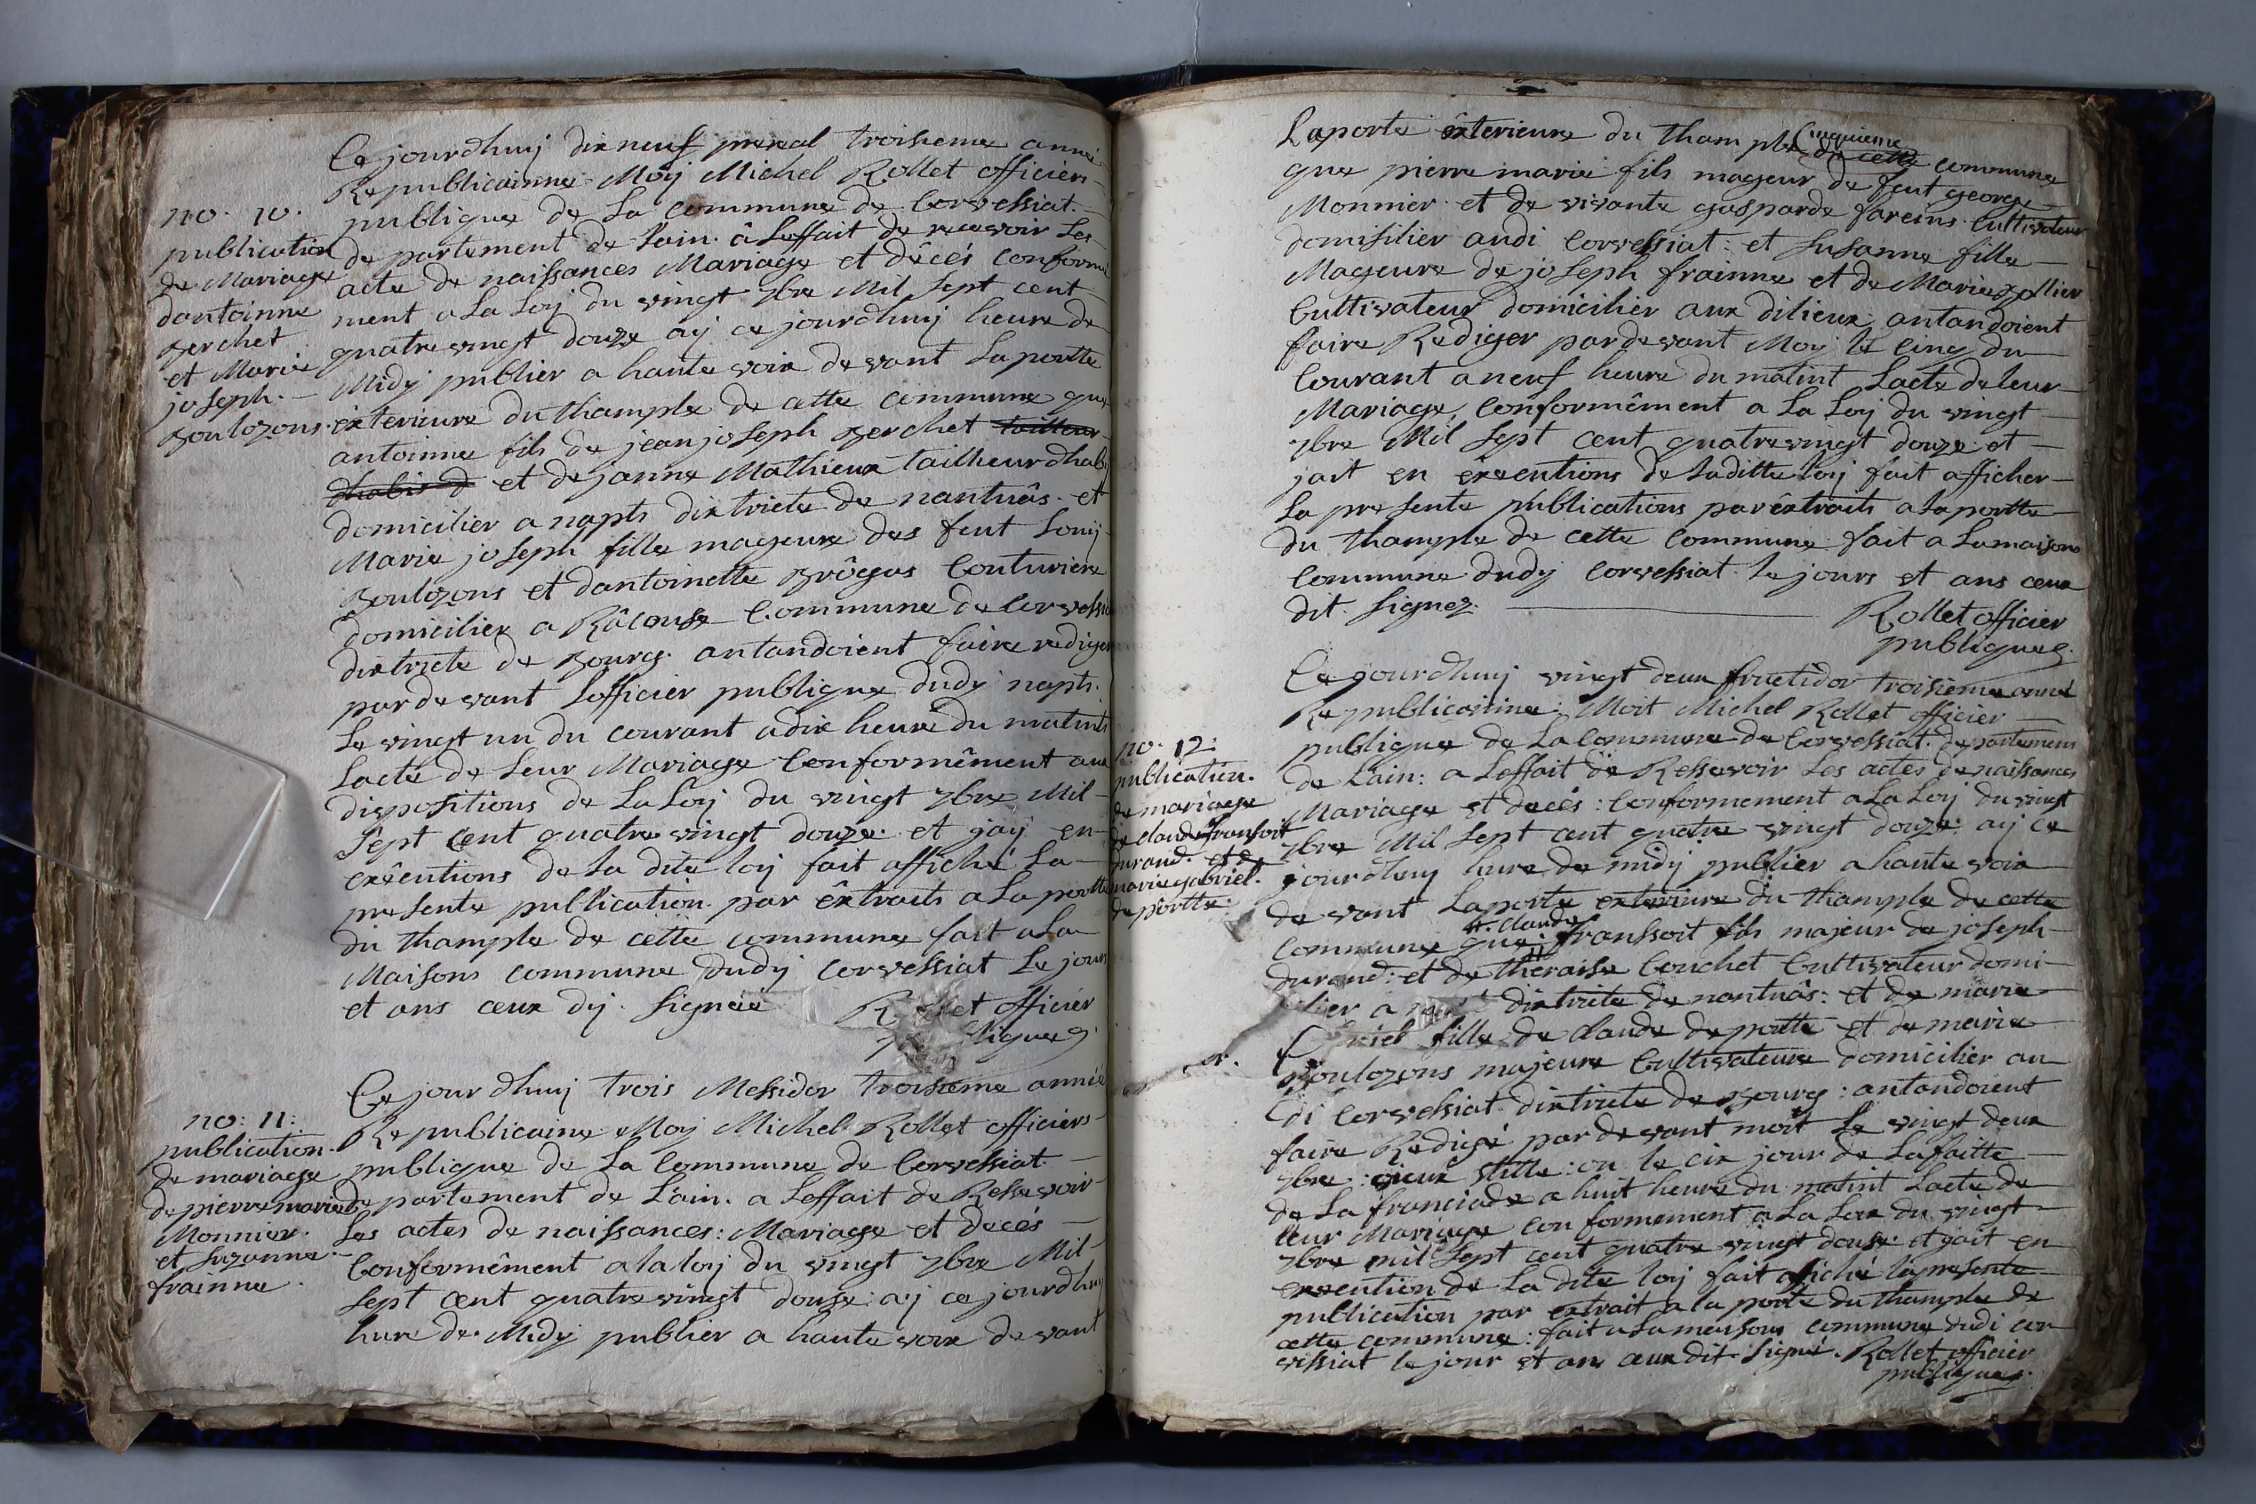 no. 10.
publication
de Mariage
dantoinne
Berchet
et Marie
joseph.
Boulozons.
Ce jourdhuy dix neuf prereal troisieme anné
Republicainne Moy Michel Rollet officiers
publique de La commune de Corvessiat.
de partement de lain. â Leffait de recevoir Les
acte de naissances Mariage et dêcés conformé
ment a La Loy du vingt 7bre Mil Sept cent
quatre vingt douze aÿ ce jourdhuy heure de
Midy publier a haute voix devant La portte
exterieure du thample de cette commune que
antoinne fils de jean joseph Berchet tailleur
dhabis d et de janne Mathieux tailheur dhabi
domicilier a napts dixtricte de nantuâs. et
Marie joseph fille mageure des feut Louÿ
Boulozons et dantoinette Brôgas Couturiere
domicilier a Râcouse Commune de Corvessi
dixtricte de Bourg. antandoient faire rediger
pardevant Lofficier publique dudy napts.
Le vingt un du courant a dix heure du matints
Lacte de Leur Mariage Conformêment aux
dispositions de La Loy du vingt 7bre Mil
Sept cent quatre vingt douze. et jaÿ en
exêcutions de La dite loy fait affiché La
presente publication par êxtraits a La portte
du thample de cette commune fait a La
Maisons commune dudy corvessiat Le jours
et ans ceux dy. Signeé R et officiér
lique
no: 11:
publication.
de mariage
de pierre marie
Monnier.
et Suzanne
frainne.
Ce jour dhuy trois Messidor troisieme année
Republicaine Moy Michel Rollet officiers
publique de La Commune de Corvessiat.
de partement de Lain. a Leffait de Ressevoir
Les actes de naissances: Mariage et decés
Conformêment a la loy du vingt 7bre Mil
Sept cent quatre vingt douse: aÿ ce jourdhuy
hure de Midy publier a haute voix devant
Laporte êxterieure du thample Cinquieme de cette commune
que pierre marie fils mageur de feut george
Monnier et de vivante gasparde fareins Cultivateur
domisilier audi Corvessiat: et Susanne fille
Mageure de joseph frainne et de Marie
Cultivateur domicilier aux dilieux: antandoient
faire Rediger pardevant Moy le cinq du
Courant a neuf heure du matint Lacte de leur
Mariage, Conformêment a La Loy du vingt
7bre Mil Sept cent quatre vingt douze et
jait en exêcutions de La ditte Loy fait afficher
La presente publications par êxtraits a La portte
du thample de cette Commune fait a La maisons
Commune dudy corvessiat le jours et ans ceux
dit. Signez.
Rollet officier
publique
no. 12:
publication.
de mariage
de claude fransoit
durand. et de
marie gabriel.
de portte
Ce jourdhuy vingt deux fructidor troisieme anné
Republicainne: Moit Michel Rollet officier
publique de La Commune de Corvessiat. departement
de Lain: a Leffait de Ressevoir Les actes de naissances
Mariage et decés: Conformement a La Loy du vingt
7bre Mil Sept cent quatre vingt douze: aÿ ce
jourdhuy hure de midy publier a haute voix
devant Laporte exterieure du thample de cette
commune que claude franssoit fils majeur de joseph
durand: et de theraise Couchet Cultivateur domi
lier a dixtricte de nantuâs: et de marie
fille de claude de portte et de marie
Boulozons majeure Cultivateure domicilier au
di Corvessiat. dixtricte de Bourg: antandoient
faire Redigé pardevant moit Le vingt deux
7bre: vieux stille: ou le cix jour de La faitte
de La franciade a huit heure du matint Lacte de
leur Mariage conformement a La Loix du vingt
7bre mil Sept cent quatre vingt douse. et jait en
exeecution de La dite loy fait afiché la presente
publication par extrait a la porte du thample de
cette commune: fait a La maisons commune dudi cor
vessiat le jour et ans ceux dit. Signé. Rollet officier
publique